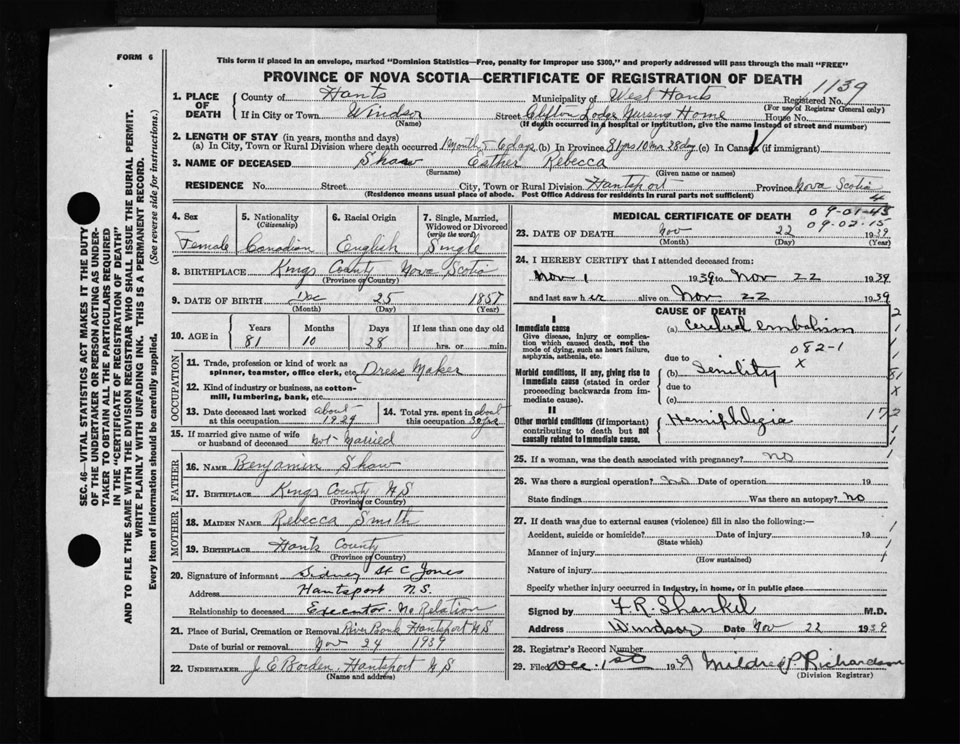 FORM 6
This form if placed in an envelope, marked "Dominion Statistics—Free, penalty for improper use $300," and properly addressed will pass through the mail "FREE"
PROVINCE OF NOVA SCOTIA—CERTIFICATE OF REGISTRATION OF DEATH
1139
1. PLACE OF DEATH
County of Hants Municipality of West Hants Registered No.
(For use of Registrar General only)
If in City or Town Windsor Street Clifton Lodge Nursing Home House No.
(Name) (If death occurred in a hospital or institution, give the name instead of street and number)
2. LENGTH OF STAY (in years, months and days)
(a) In City, Town or Rural Division where death occurred 1 month & 6 days (b) In Province 81 yrs 10 mos 28 day (c) In Canada (if immigrant)
3. NAME OF DECEASED Shaw Esther Rebecca
(Surname) (Given name or names)
RESIDENCE No. Street City, Town or Rural Division Hantsport Province Nova Scotia
(Residence means usual place of abode. Post Office Address for residents in rural parts not sufficient)
SEC. 46—VITAL STATISTICS ACT MAKES IT THE DUTY
OF THE UNDERTAKER OR PERSON ACTING AS UNDER-
TAKER TO OBTAIN ALL THE PARTICULARS REQUIRED
IN THE "CERTIFICATE OF REGISTRATION OF DEATH"
AND TO FILE THE SAME WITH THE DIVISION REGISTRAR WHO SHALL ISSUE THE BURIAL PERMIT.
WRITE PLAINLY WITH UNFADING INK. THIS IS A PERMANENT RECORD.
Every item of information should be carefully supplied. (See reverse side for instructions.)
4. Sex 5. Nationality 6. Racial Origin 7. Single, Married,
(Citizenship) Widowed or Divorced
(write the word)
Female Canadian English Single
8. BIRTHPLACE Kings County Nova Scotia
(Province or Country)
9. DATE OF BIRTH Dec 25 1857
(Month) (Day) (Year)
10. AGE in Years Months Days If less than one day old
81 10 28 hrs. or min.
OCCUPATION
11. Trade, profession or kind of work as
spinner, teamster, office clerk, etc. Dress Maker
12. Kind of industry or business, as cotton-
mill, lumbering, bank, etc.
13. Date deceased last worked at this occupation about 1929
14. Total yrs. spent in this occupation about 30 yrs
15. If married give name of wife
or husband of deceased Not Married
FATHER
16. NAME Benjamin Shaw
17. BIRTHPLACE Kings County N S
(Province or Country)
MOTHER
18. MAIDEN NAME Rebecca Smith
19. BIRTHPLACE Hants County
(Province or Country)
20. Signature of informant Sidney St C Jones
Address Hantsport N.S.
Relationship to deceased Executor - No Relation
21. Place of Burial, Cremation or Removal River Bank Hantsport N S
Date of burial or removal Nov 24 1939
22. UNDERTAKER J. E Borden, Hantsport N S
(Name and address)
MEDICAL CERTIFICATE OF DEATH
4
09-01-45
09-02-15
23. DATE OF DEATH Nov 22 1939
(Month) (Day) (Year)
24. I HEREBY CERTIFY that I attended deceased from:
Nov 1 1939 to Nov 22 1939
and last saw her alive on Nov 22 1939
CAUSE OF DEATH
I
Immediate cause
Give disease, injury or complication which caused death, not the mode of dying, such as heart failure, asphyxia, asthenia, etc.
(a) Cerebral embolism
082-1
due to
Morbid conditions, if any, giving rise to immediate cause (stated in order proceeding backwards from immediate cause).
(b) Senility X
due to
(c)
II
Other morbid conditions (if important) contributing to death but not causally related to immediate cause.
Hemiphlegia
25. If a woman, was the death associated with pregnancy? no
26. Was there a surgical operation? no Date of operation 19
State findings Was there an autopsy? No
27. If death was due to external causes (violence) fill in also the following:—
Accident, suicide or homicide? Date of injury 19
(State which)
Manner of injury
(How sustained)
Nature of injury
Specify whether injury occurred in industry, in home, or in public place
Signed by F. R. Shankel M.D.
Address Windsor Date Nov 22 1939
28. Registrar's Record Number
29. Filed Dec. 1st 1939 Mildred P. Richardson
(Division Registrar)